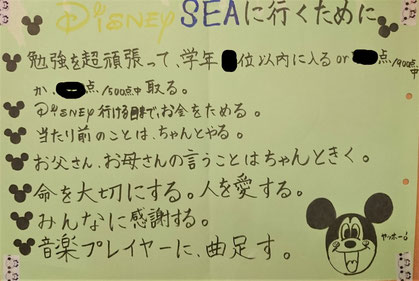 DiSNEY SEAに行くために
勉強を超頑張って、学年 位以内に入る or 点/900点中
か、 点/500点中 取る。
DiSNEY 行ける日まで、お金をためる。
当たり前のことは、ちゃんとやる。
お父さん、お母さんの言うことはちゃんときく。
命を大切にする。人を愛する。
みんなに感謝する。
音楽プレイヤーに、曲足す。
ヤッホー♪